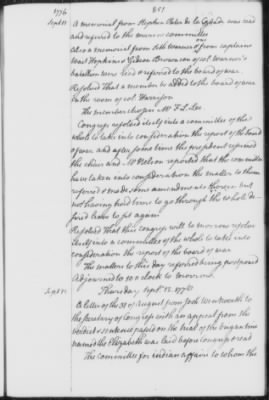 1776
351
Sept 11
A memorial from Stephen Oster de la Condé was read
and referred to the marine committee
Also a memorial from Seth Warner &amp; from captains
one
Wait Hopkins &amp; Gideon Brownson of col. Warner's
battalion were read &amp; referred to the board of war.
Resolved that a member be added to the board of war
in the room of col. Harrison
The member chosen Mr F. L. Lee
Congress resolved itself into a committee of the
whole to take into consideration the report of the board
of war and after some time the president resumed
the chair and Mr Nelson reported that the committee
have taken into consideration the matter to them
referred &amp; made some amendments thereto but
not having had time to go through the whole de-
sired leave to sit again
Resolved that this congress will to morrow resolve
itself into a committee of the whole to take into
consideration the report of the board of war
The matters to this day referred being postponed
Adjourned to 10 o clock to morrow.
Sept 12
Thursday Sept. 12. 1776
A letter of the 31 of August from Josh Wentworth to
the secretary of congress with an appeal from the
verdict &amp; sentence passed on the trial of the brigantine
named the Elizabeth was laid before congress &amp; read
The committee for indian affairs to whom the